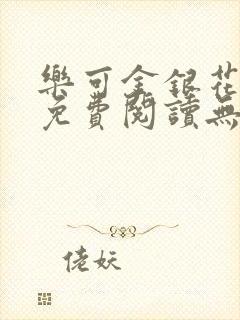 樂可金銀花
免費閱讀無
佬妖